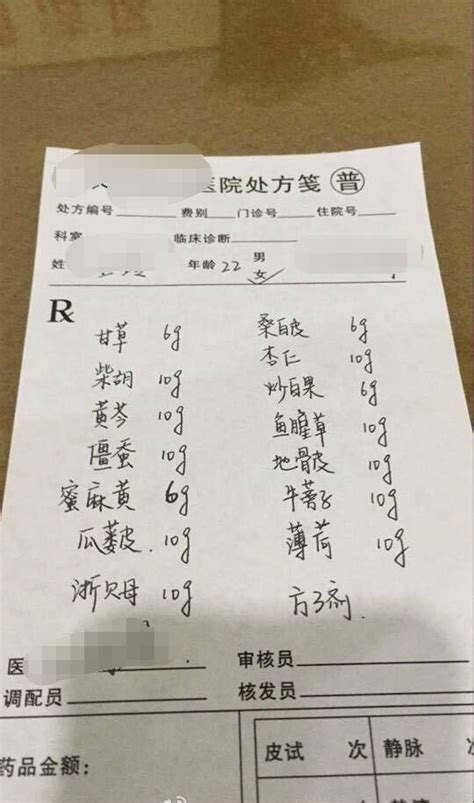 医院处方笺 普
处方编号 费别 门诊号 住院号
科室 临床诊断
姓 年龄 22 男
女✓
R
甘草 6g 桑白皮 6g
柴胡 10g 杏仁 10g
黄芩 10g 炒白果 6g
僵蚕 10g 鱼腥草 10g
蜜麻黄 6g 地骨皮 10g
瓜蒌皮 10g 牛蒡子 10g
浙贝母 10g 薄荷 10g
医 审核员
调配员 核发员
药品金额: 皮试 次 静脉 次